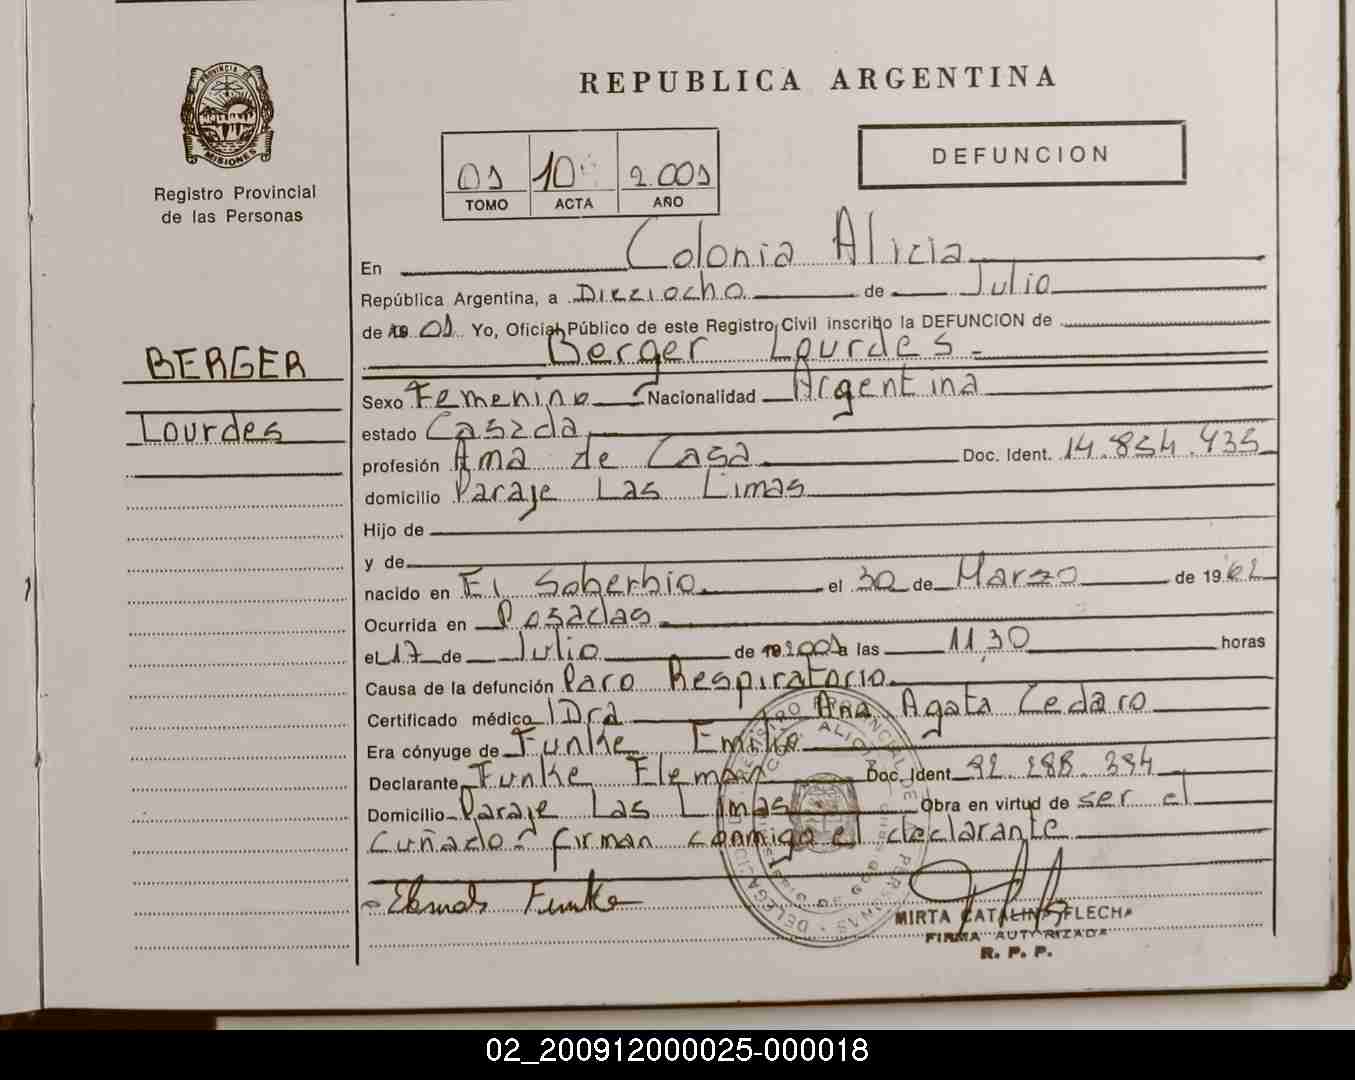 PROVINCIA DE
MISIONES
Registro Provincial
de las Personas
REPUBLICA ARGENTINA
01 10 2.001
TOMO ACTA AÑO
DEFUNCION
En Colonia Alicia
República Argentina, a Dieciocho de Julio
de 01 Yo, Oficial Público de este Registro Civil inscribo la DEFUNCION de
Berger Lourdes.=
BERGER
Lourdes
Sexo Femenino Nacionalidad Argentina
estado Casada
profesión Ama de Casa Doc. Ident. 14.854.435
domicilio Paraje Las Limas
Hijo de
y de
nacido en El Soberbio el 30 de Marzo de 1962
Ocurrida en Posadas
el 17 de Julio de 2001 a las 11,30 horas
Causa de la defunción Paro Respiratorio
Certificado médico Dra Ana Agata Cedaro
Era cónyuge de Funke Emilio
Declarante Funke Eleman Doc. Ident 92.288.384
Domicilio Paraje Las Limas Obra en virtud de ser el
Cuñado= firman conmigo el declarante
Funke
MIRTA CATALINA FLECHA
FIRMA AUTORIZADA
R. P. P.
02_200912000025-000018